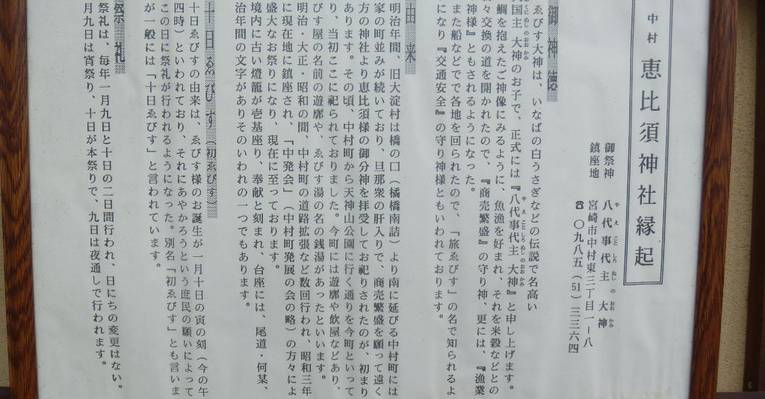 中村 恵比須神社縁起
御祭神 八代事代主 大神
やえことしろぬしのおおかみ
鎮座地 宮崎市中村東三丁目一ー八
☎〇九八五(51)三三六四
御神徳
ゑびす大神は、いなばの白うさぎなどの伝説で名高い
国主 大神のお子で、正式には『八代事代主 大神』と申し上げます。
鯛を抱えたご神像にみるように、魚漁を好まれ、それを米穀などとの
々交換の道を開かれたので、『商売繁盛』の守り神、更には、『漁業
神様』ともされるようになった。
また船などでで各地を回られたので、「旅ゑびす」の名で知られるよ
になり『交通安全』の守り神様ともいわれております。
由来
明治年間、旧大淀村は橋の口(橘橋南詰)より南に延びる中村町には
家の町並みが続いており、旦那衆の肝入りで、商売繁盛を願って遠く
方の神社より恵比須様の御分神を拝受してお祀りされたのが、初まり
あります。その頃、中村町から天神山公園に行く通りを今町といって
り、当初ここに祀られておりました。今町には遊廓や飲屋などあり、
びす屋の名前の遊廓や、ゑびす湯の名の銭湯があったといいます。
明治・大正・昭和の間、中村町の道路拡張など数回行われ、昭和三年
に現在地に鎮座され、「中発会」(中村町発展の会の略)の方々によ
盛大なお祭りになり、現在に至っております。
境内に古い燈籠が壱基座り、奉献と刻まれ、台座には、尾道・何某、
治年間の文字がありそのいわれの一つでもあります。
十日ゑびす(初ゑびす)
十日ゑびすの由来は、ゑびす様のお誕生が一月十日の寅の刻(今の午
四時)といわれており、それにあやかろうという庶民の願いによって
この日に祭礼が行われるようになった。別名「初ゑびす」とも言いま
が一般には「十日ゑびす」と言われています。
祭礼
祭礼は、毎年一月九日と十日の二日間行われ、日にちの変更はない。
月九日は宵祭り、十日が本祭りで、九日は夜通しで行われます。